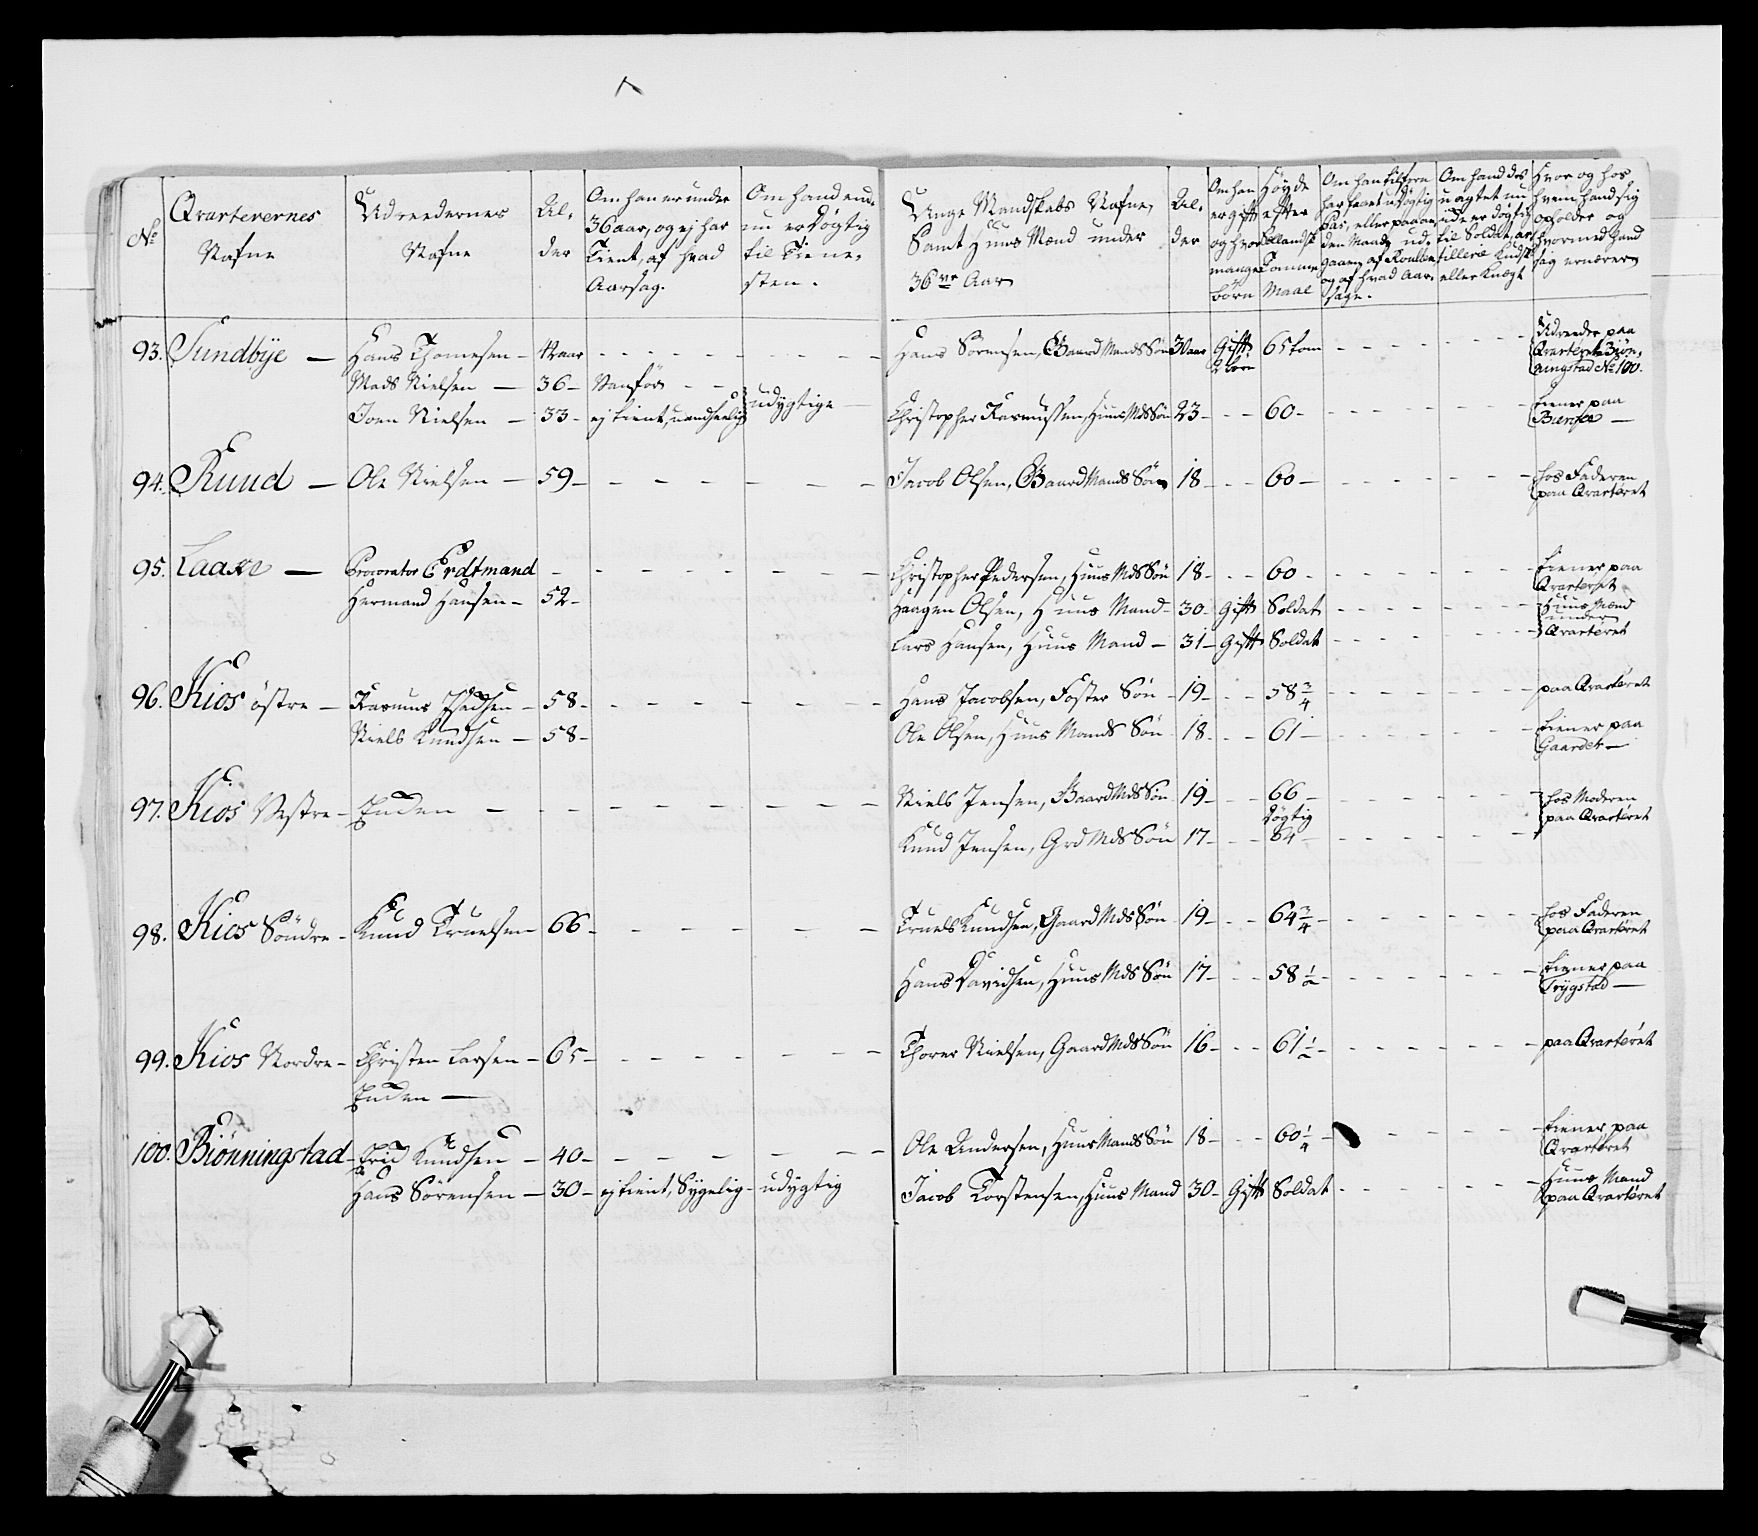 No
Qvarterernes Nafne
Udreedernes Nafne
Al- der
Om han er under 36 aar, og ej har Tient, af hvad Aarsag.
Om hand end- nu er døgtig til Tiene- sten.
Unge Mandskabs Nafne, Samt Huus Mænd under 36ve Aar
Al- der
Om han er gift og hvor mange børn
Høyde efter Sællandsk Tomme Maal
Om han tilforn har faaet udøgtig Pas, eller paa anden Maade udgaaen af Roullen og af hvad Aarsage.
Om hand des uagtet nu ude er døgtig til Soldat, artillerie Kudsk eller Knægt
Hvor og hos hvem hand sig opholder og hvormed hand sig ernærer
93. Sundbye — Hans Thomesen - aar - - - Hans Sørensen, Gaard Mands Søn 30 aar Gift 2 børn 65 tom - - - Udreeder paa Qvarteret Biønningstad No 100.
Mads Nielsen — 36 - Vanfør - - udygtige
Joen Nielsen — 33 - ej tient, uandseelig Christopher Rasmussen, Huus Mds Søn 23 - - - 60 - - - - tiener paa
94. Ruud — Ole Nielsen — 59 - - - - Jacob Olsen, Gaard Mands Søn 18 - - - 60 - - - - hos Faderen paa Qvarteret
95. Laaxe — Procurator Erdtmand - - - - Christopher Pedersen, Huus Mds Søn 18 - - - 60 - - - - tiener paa Qvarteret
Hermand Hansen - 52 - Haagen Olsen, Huus Mand - 30 - Gift Soldat - - - Huus Mænd under Qvarteret
Lars Hansen, Huus Mand - 31 - Gift Soldat - - -
96. Kios østre — Rasmus - 58 - - - - Hans Jacobsen, Foster Søn - 19 - - - 58 3/4 - - - paa Qvarteret
Niels Knudsen — 58 - Ole Olsen, Huus Mands Søn - 18 - - - 61 - - - - tiener paa Gaarder —
97. Kios Vestre - Enken - - - - Niels Jensen, Gaard Mds Søn 19 - - - 66 - døgtig - - - hos Moderen paa Qvarteret
Knud Jensen, Grd Mds Søn 17 - - - 64 - - - -
98. Kios Søndre - Knud Truelsen 66 - - - - Truels Knudsen, Gaard Mds Søn - 19 - - - 64 3/4 - - - hos Faderen paa Qvarteret
Hans Davidsen, Huus Mds Søn 17 - - - 58 1/2 - - - tiener paa Trygstad —
99. Kios Nordre - Christen Larsen - 65 - - - - Thorer Nielsen, Gaard Mds Søn 16 - - - 61 1/2 - - - paa Qvarteret
Enken —
100. Biønningstad - Knudsen - 40 - - - - Ole Andersen, Huus Mands Søn 18 - - - 60 1/4 - - - tiener paa Qvarteret
Hans Sørensen — 30 - ej tient, Sygelig - udygtig Jacob Torstensen, Huus Mand 30 - Gift Soldat - - - Huus Mand paa Qvarteret